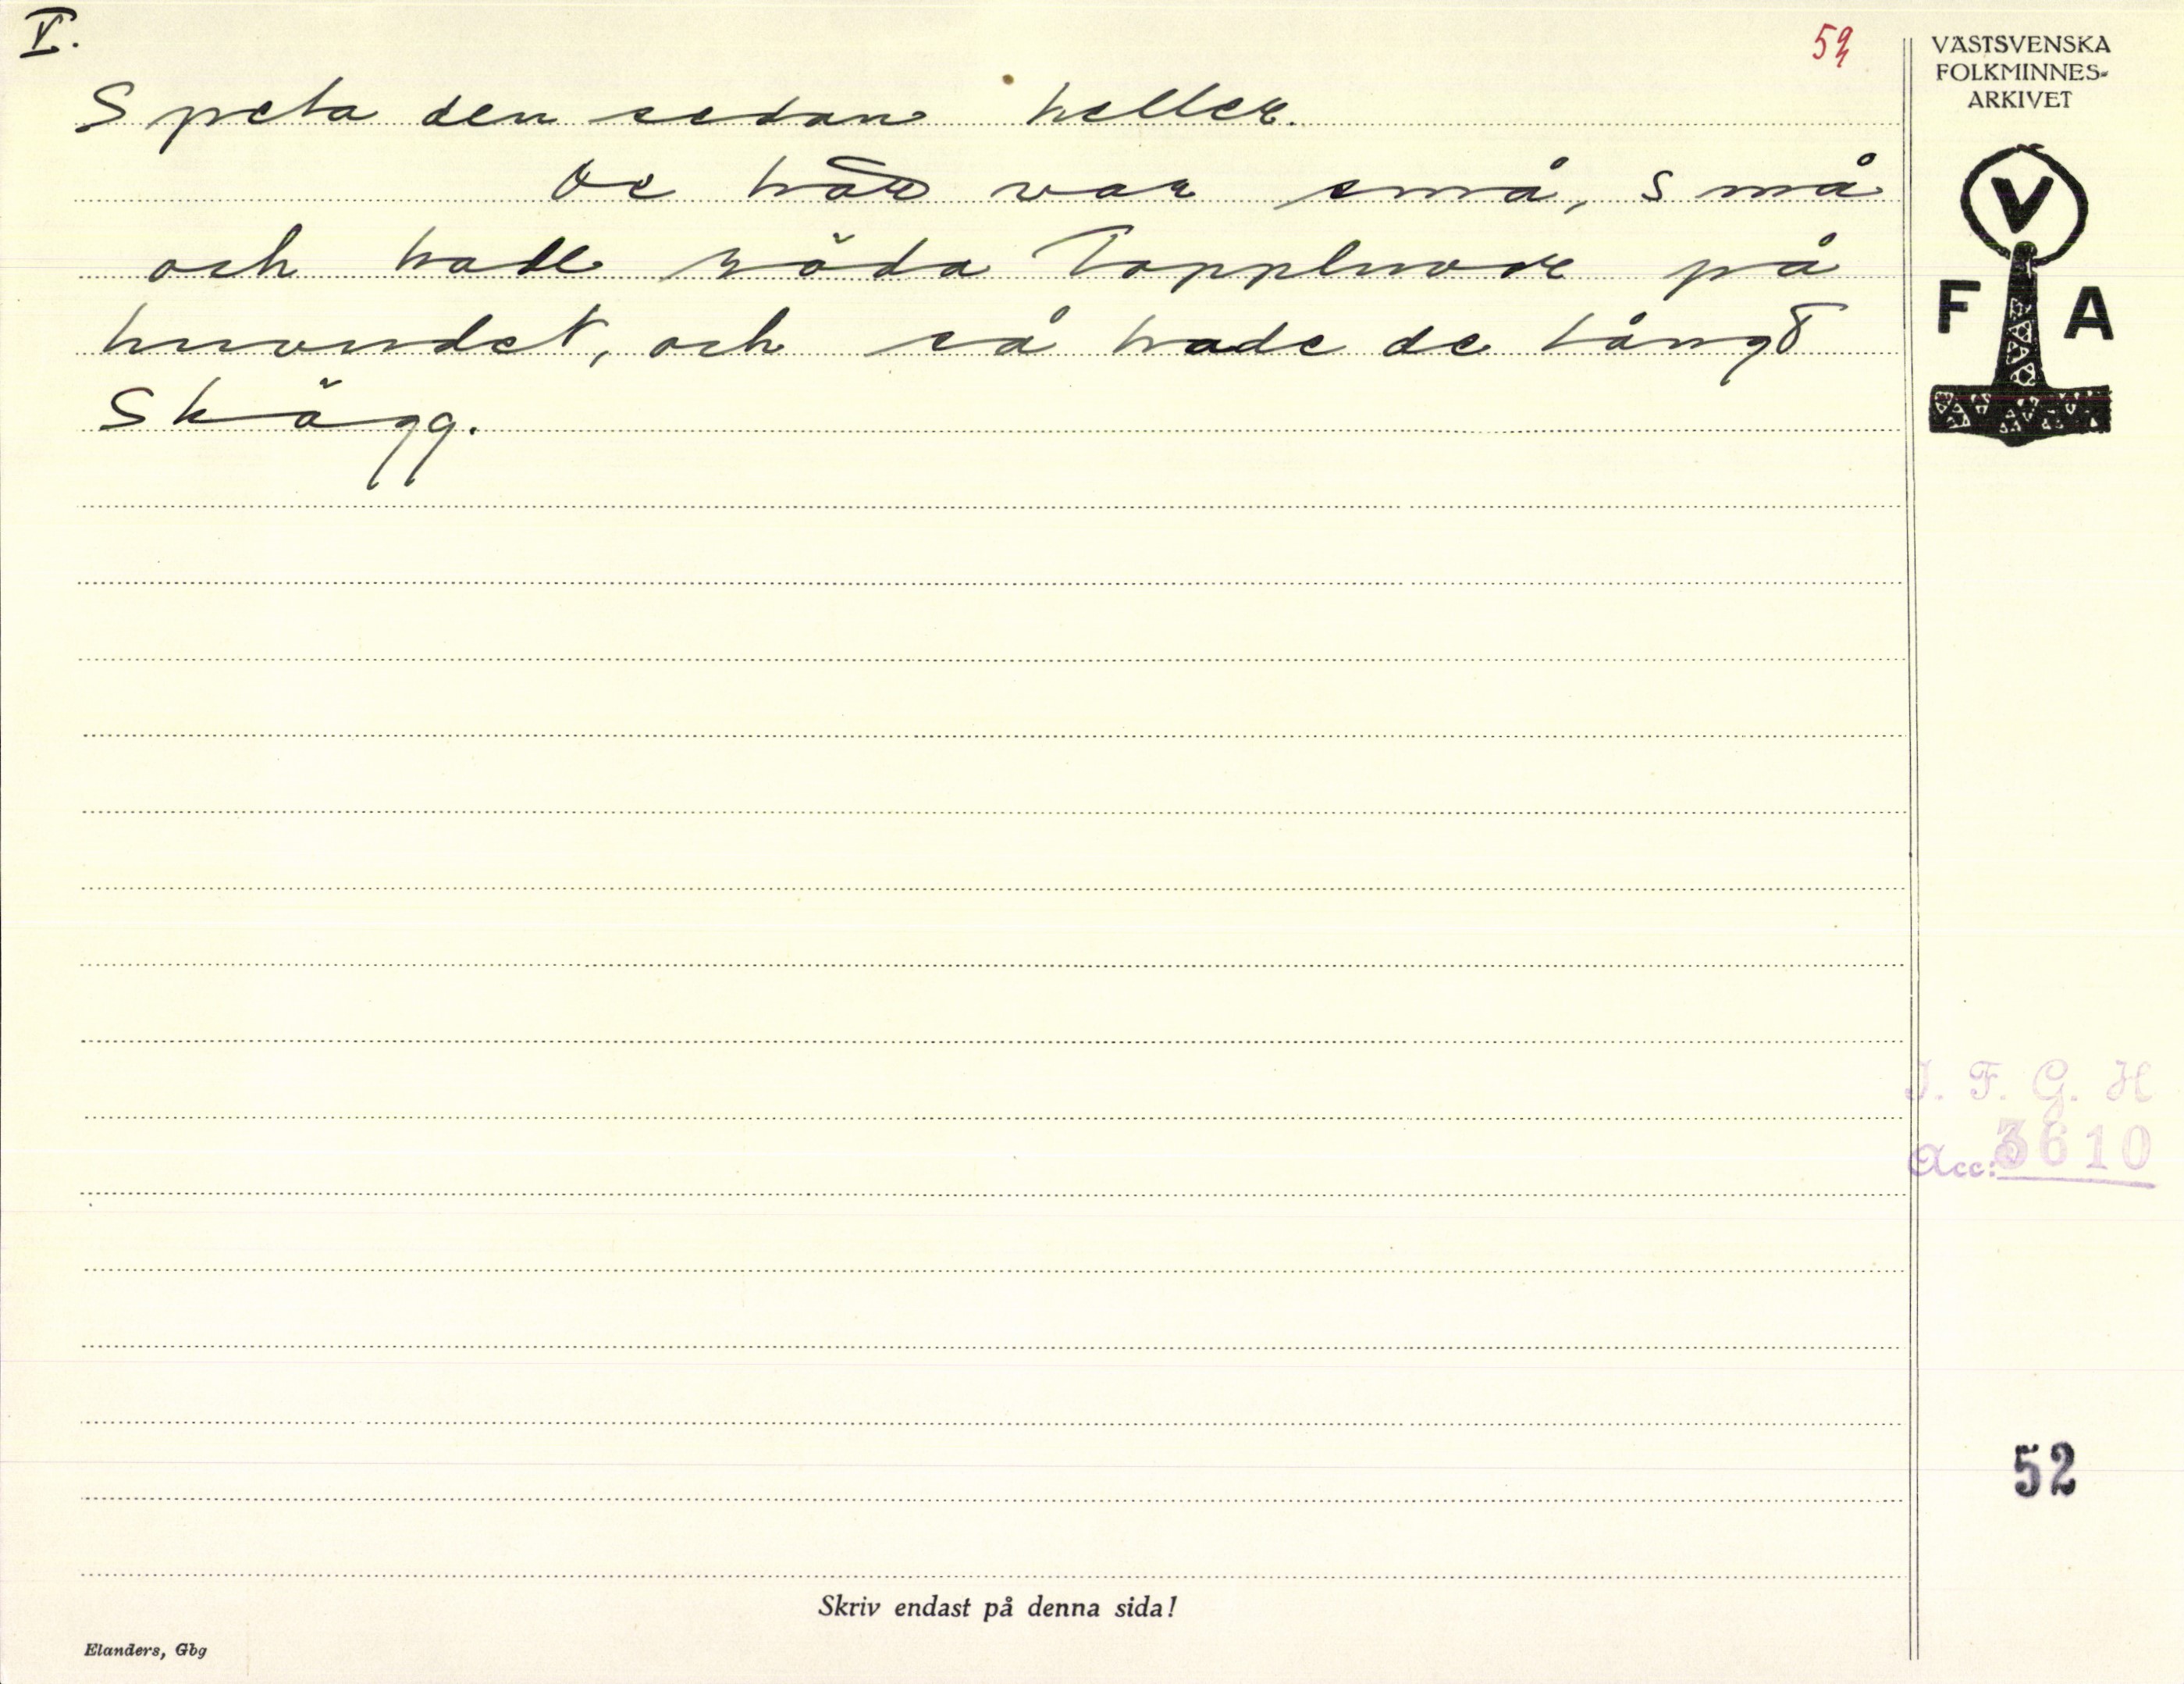 V.
52
VÄSTSVENSKA
FOLKMINNES-
ARKIVET
Speta den sedan heller.
De här var små, små
och hade röda toppluvor på
huvudet, och så hade de långt
Skägg.
V
F A
I. F. G. H
Acc: 3610
52
Skriv endast på denna sida!
Elanders, Gbg